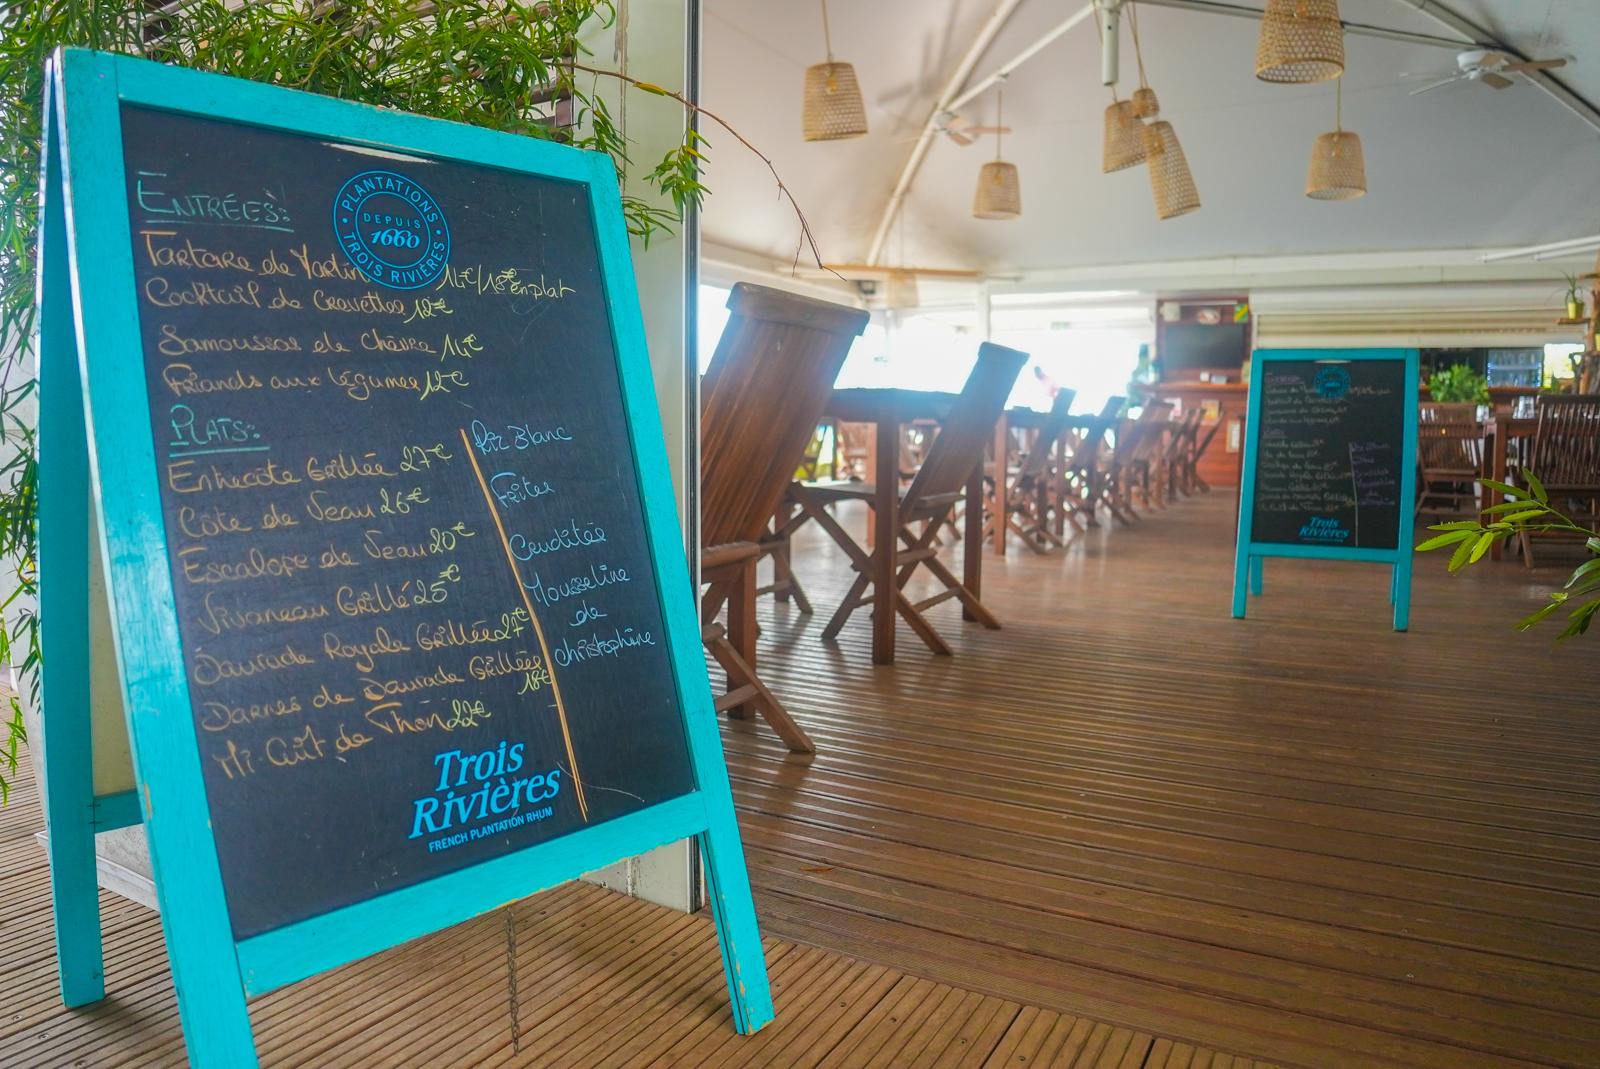 PLANTATIONS TROIS RIVIÈRES
DEPUIS
1660
ENTRÉES:
Tartare de Marlin 14€/18€ en plat
Cocktail de Crevettes 12€
Samoussas de Chèvre 14€
Friands aux légumes 12€
PLATS:
Entrecôte Grillée 27€
Côte de Veau 26€
Escalope de Veau 20€
Vivaneau Grillé 25€
Daurade Royale Grillée 27€
Darnes de Daurade Grillées
18€
Mi-Cuit de Thon 22€
Riz Blanc
Frites
Crudités
Mousseline
de
christophine
Trois
Rivières
FRENCH PLANTATION RHUM
Trois
Rivières